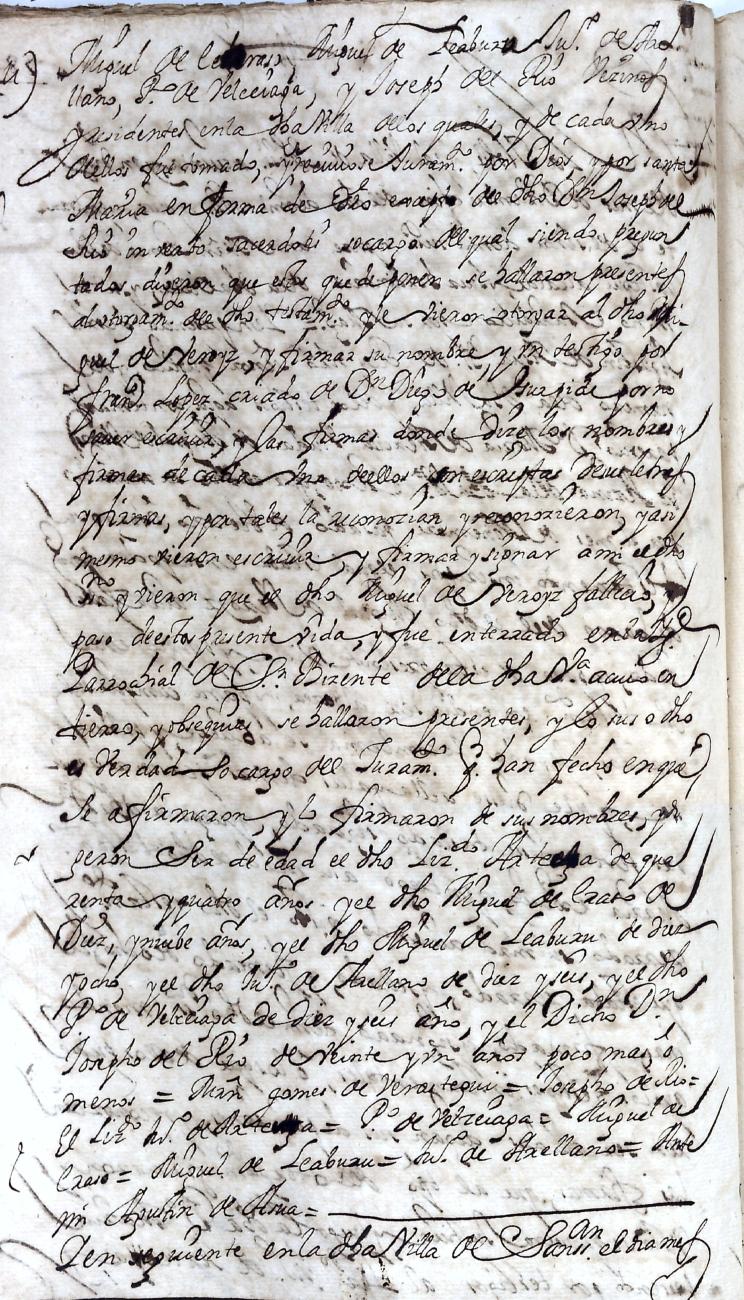 Miguel de leraso, Miguel de Leaburu Ju.º de Arel
llano, P.º de Velçiaga, y Joseph del Rio Vezinos
y residentes en la dha Villa de los quales, y de cada vno
dellos fue tomado, y reciuiose Juram.to por Dios, y por santa
Maria en forma de dro exepto del dho Dn Joseph del
Rio in verbo sacerdotis so cargo del qual siendo pregun
tados digeron que estos que deponen se hallaron presentes
al otorgam.to del dho testam.to y le vieron otorgar al dho Mi-
guel de Veroyz, y firmar su nombre, y vn testigo por
fran.co Lopez criado de Dn Diego de Ysurpide por no
sauer escriuir, y las firmas donde dize los nombres y
firmas de cada vno dellos son escriptas de sus letras
y firmas, y por tales la reconozian y reconozieron, y asi
mesmo vieron escriuir, y firmar y signar a mi el dho
ss.no y vieron que el dho Miguel de Veroyz fallecio, y
paso desta presente vida, y fue enterrado en la Yg.e
Parrochial de S.n Bizente de la dha V.a a cuio en
tierro, y obsequias se hallaron presentes, y lo suso dho
es Verdad so cargo del Juram.to q. han fecho en que
se afirmaron, y lo firmaron de sus nombres, y di
geron Ser de edad el dho Liz.do Arteaga de qua
renta y quatro años y el dho Miguel de Eraso de
Diez, y nuebe años, y el dho Miguel de Leaburu de diez
y ocho, y el dho Ju.º de Arellano de diez y seis, y el dho
P.º de Velçiaga de diez y seis año, y el Dicho Dn
Josepho del Rio de Veinte y vn años poco mas, o
menos = Mrn gomes de Verastegui = Josepho de Rio =
El Liz.do Ju.º de Arteaga = P.º de Velzeiaga = Miguel de
Eraso = Miguel de Leaburu = Ju.º de Arellano = Ante
mi Agustin de Asua =
En seguiente en la dha Villa de Sanss.an el dia mes